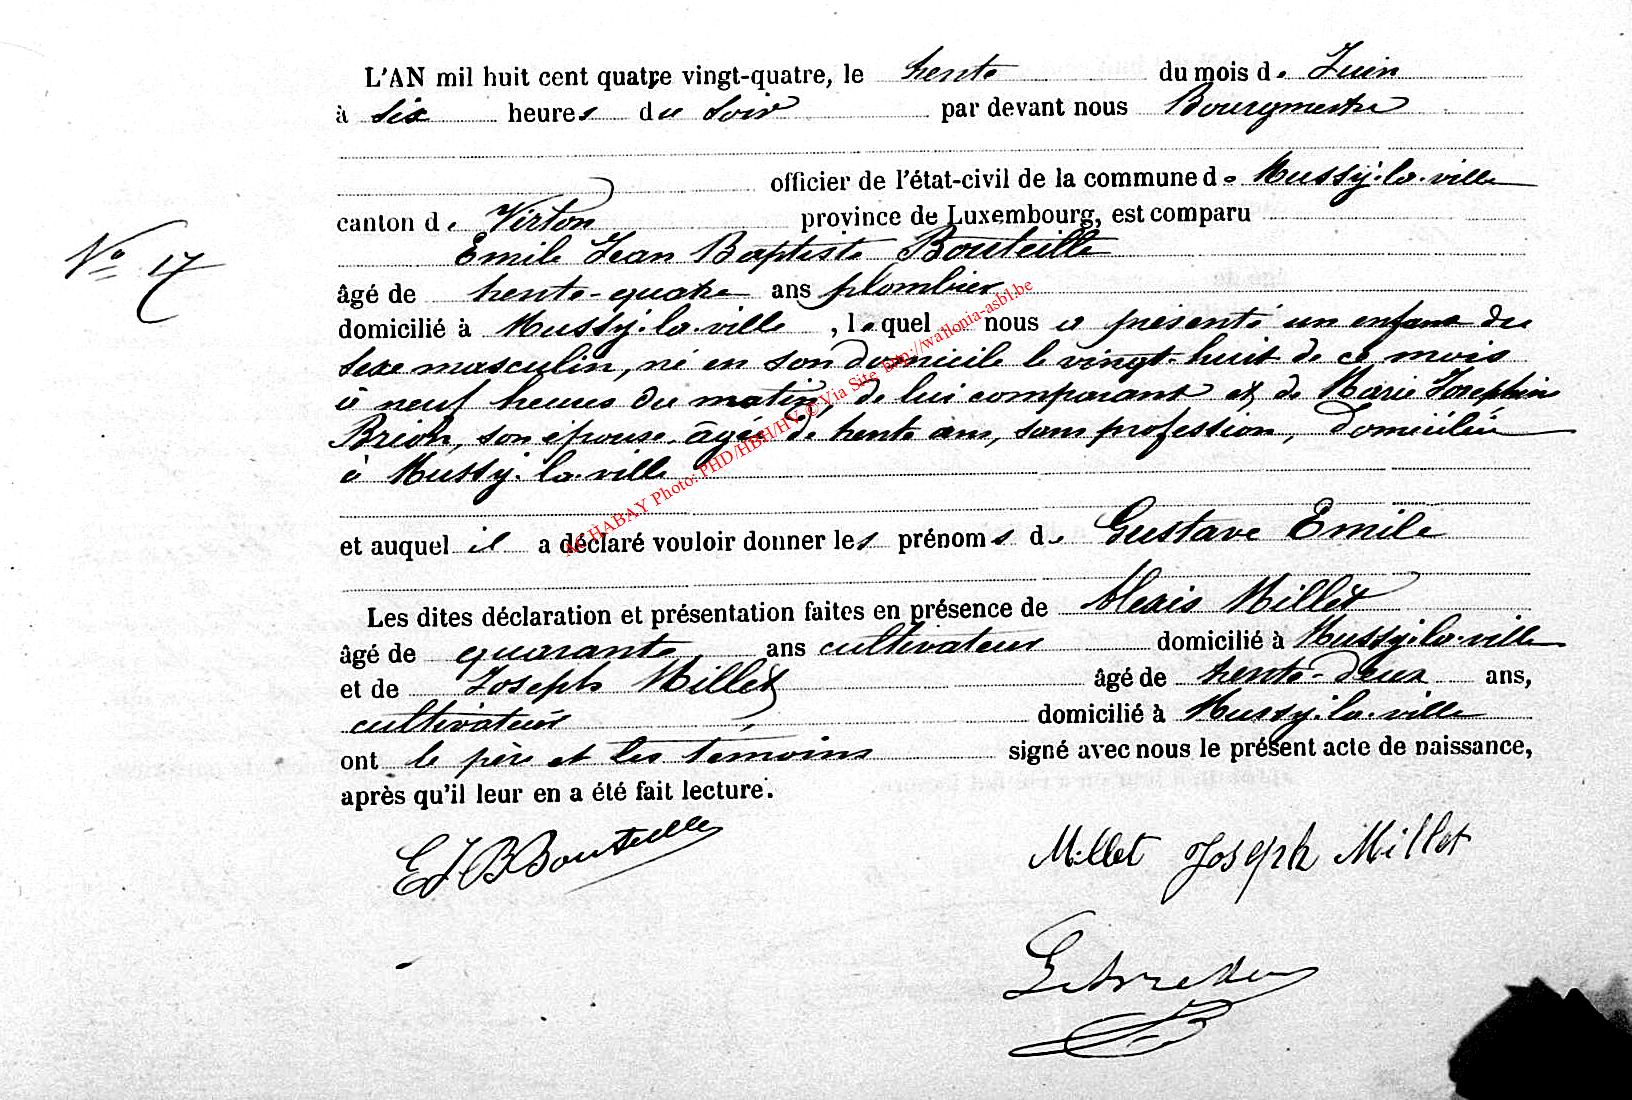 L'AN mil huit cent quatre vingt-quatre, le trente du mois de Juin
à six heures du soir par devant nous Bourgmestre
officier de l'état-civil de la commune de Mussy-la-ville
canton de Virton province de Luxembourg, est comparu
N° 17
Emile Jean Baptiste Bouteille
âgé de trente-quatre ans plombier
domicilié à Mussy-la-ville, lequel nous a présenté un enfant du
sexe masculin, né en son domicile le vingt-huit de ce mois
à neuf heures du matin, de lui comparant et de Marie Josephine
Brion, son épouse, âgée de trente ans, sans profession, domiciliée
à Mussy-la-ville
et auquel il a déclaré vouloir donner les prénoms de Gustave Emile
Les dites déclaration et présentation faites en présence de Alexis Millet
âgé de quarante ans cultivateur domicilié à Mussy-la-ville
et de Joseph Millet âgé de trente-deux ans,
cultivateur domicilié à Mussy-la-ville
ont le père et les témoins signé avec nous le présent acte de naissance,
après qu'il leur en a été fait lecture.
EJBBouteille
Millet Joseph Millet
ACHABAY Photo: PHD/HBH/HV © Via Site http://wallonia-asbl.be